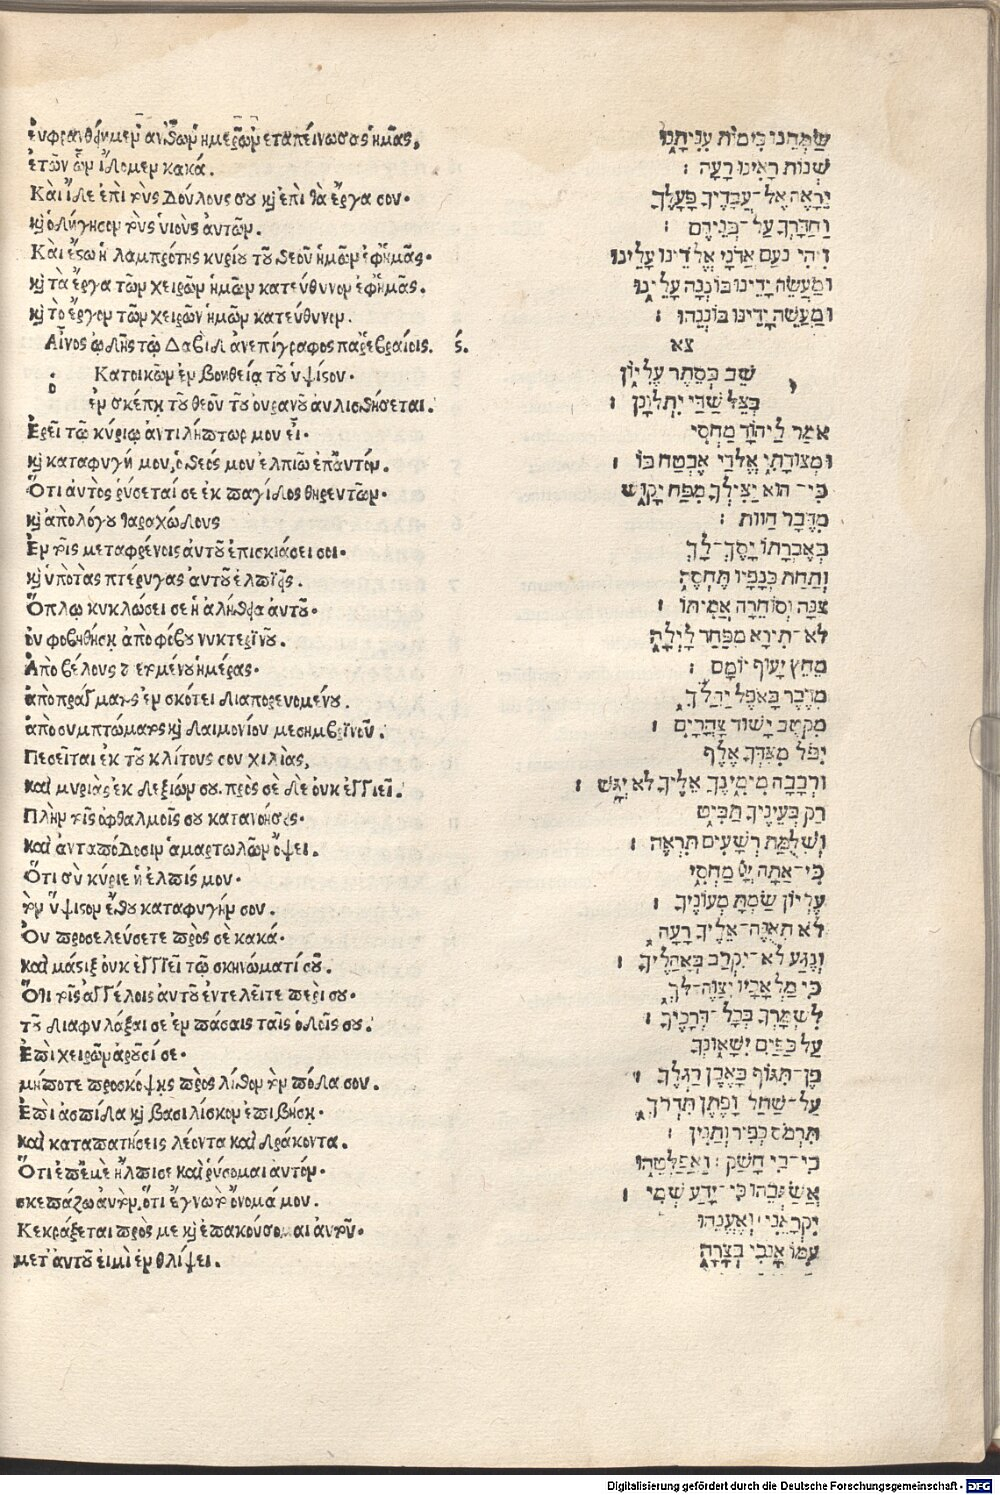 ἐυφρανθῆημεν ανθῶν ἡμερῶν εταπείνωσας ἡμᾶς,
ἐτῶν ὧν ἴδομεν κακά.
Καὶ ἴδε ἐπὶ τοὺς δούλους σου καὶ ἐπὶ τὰ ἔργα σου·
καὶ ὁδήγησον τοὺς ὑιοὺς ἀυτῶν.
Καὶ ἔστω ἡ λαμπρότης κυρίου τοῦ θεοῦ ἡμῶν ἐφημᾶς·
καὶ τὰ ἔργα τῶν χειρῶν ἡμῶν κατεύθυνον ἐφημᾶς.
καὶ τὸ ἔργον τῶν χειρῶν ἡμῶν κατεύθυνον.
Αἶνος ὠδῆς τῷ Δαβὶδ ἀνεπίγραφος παρ' ἑβραίοις. ϛ.
Κατοικῶν ἐν βοηθείᾳ τοῦ ὑψίστου·
ο
ἐν σκέπῃ τοῦ θεοῦ τοῦ ὀυρανοῦ ἀυλισθήσεται.
Ἐρεῖ τῷ κύριῳ ἀντιλήπτωρ μου εἶ·
καὶ καταφυγή μου, ὁ θεός μου ἐλπιῶ ἐπ' ἀυτόν.
Ὅτι ἀυτὸς ῥύσεταί σε ἐκ παγίδος θηρευτῶν·
καὶ ἀπο λόγου ταραχώδους
Ἐν τοῖς μεταφρένοις ἀυτοῦ ἐπισκιάσει σοι·
καὶ ὑπο τὰς πτέρυγας ἀυτοῦ ἐλπιεῖς.
Ὅπλῳ κυκλώσει σε ἡ ἀλήθεια ἀυτοῦ·
ὀυ φοβηθήσῃ ἀπὸ φόβου νυκτερινοῦ.
Ἀπὸ βέλους πετομένου ἡμέρας·
ἀπὸ πράγματος ἐν σκότει διαπορευομένου.
ἀπὸ συμπτώματος καὶ δαιμονίου μεσημβρινοῦ.
Πεσεῖται ἐκ τοῦ κλίτους σου χιλιὰς,
καὶ μυριὰς ἐκ δεξιῶν σου. πρὸς σὲ δὲ ὀυκ ἐγγιεῖ.
Πλὴν τοῖς ὀφθαλμοῖς σου κατανοήσεις·
καὶ ἀνταπόδοσιν ἁμαρτωλῶν ὄψει.
Ὅτι σὺ κύριε ἡ ἐλπίς μου·
τὸν ὕψιστον ἔθου καταφυγήν σου.
Ὀυ προσελεύσετε πρὸς σὲ κακά·
καὶ μάστιξ ὀυκ ἐγγιεῖ τῷ σκηνώματί σοῦ.
Ὅτι τοῖς ἀγγέλοις ἀυτοῦ ἐντελεῖτε περὶ σου·
τοῦ διαφυλάξαι σε ἐν πάσαις ταῖς ὁδοῖς σου.
Ἐπὶ χειρῶν ἀροῦσί σε·
μήποτε προσκόψῃς πρὸς λίθον τὸν πόδα σου.
Ἐπὶ ἀσπίδα καὶ βασιλίσκον ἐπιβήσῃ·
καὶ καταπατήσεις λέοντα καὶ δράκοντα.
Ὅτι ἐπ' ἐμὲ ἤλπισε καὶ ῥύσομαι ἀυτόν·
σκεπάζω ἀυτὸν, ὅτι ἔγνω τὸ ὄνομά μου.
Κεκράξεται πρὸς με καὶ ἐπακούσομαι ἀυτοῦ·
μετ' ἀυτοῦ ειμὶ ἐν θλίψει.
שַׂמְּחֵנוּ כִּימוֹת עִנִּיתָנוּ
שְׁנוֹת רָאִינוּ רָעָה :
יֵרָאֶה אֶל־עֲבָדֶיךָ פָּעֳלֶךָ
וַהֲדָרְךָ עַל־בְּנֵיהֶם :
וִיהִי נֹעַם אֲדֹנָי אֱלֹהֵינוּ עָלֵינוּ
וּמַעֲשֵׂה יָדֵינוּ כּוֹנְנָה עָלֵינוּ
וּמַעֲשֵׂה יָדֵינוּ כּוֹנְנֵהוּ :
צא
יֹשֵׁב בְּסֵתֶר עֶלְיוֹן
בְּצֵל שַׁדַּי יִתְלוֹנָן :
אֹמַר לַיהוָֹד מַחְסִי
וּמְצוּדָתִי אֱלֹדַי אֶבְטַח בּוֹ :
כִּי־הוּא יַצִּילְךָ מִפַּח יָקוּשׁ
מִדֶּבֶר הַוּוֹת :
בְּאֶבְרָתוֹ יָסֶךְ־לָךְ
וְתַחַת כְּנָפָיו תֶּחְסֶה
צִנָּה וְסוֹחֵרָה אֲמִתּוֹ :
לֹא־תִירָא מִפַּחַד לָיְלָה
מֵחֵץ יָעוּף יוֹמָם :
מִדֶּבֶר בָּאֹפֶל יַהֲלֹךְ
מִקֶּטֶב יָשׁוּד צָהֳרָיִם :
יִפֹּל מִצִּדְּךָ אֶלֶף
וּרְבָבָה מִימִינֶךָ אֵלֶיךָ לֹא יִגָּשׁ :
רַק בְּעֵינֶיךָ תַבִּיט
וְשִׁלֻּמַת רְשָׁעִים תִּרְאֶה :
כִּי־אַתָּה יְיָ מַחְסִי
עֶלְיוֹן שַׂמְתָּ מְעוֹנֶךָ :
לֹא תְאֻנֶּה־אֵלֶיךָ רָעָה
וְנֶגַע לֹא־יִקְרַב בְּאָהֳלֶיךָ :
כִּי מַלְאָכָיו יְצַוֶּה־לָּךְ
לִשְׁמָרְךָ בְּכָל־דְּרָכֶיךָ :
עַל כַּפַּיִם יִשָּׂאוּנְךָ
פֶּן־תִּגּוֹף בָּאֶבֶן רַגְלֶךָ :
עַל־שַׁחַל וָפֶתֶן תִּדְרֹךְ
תִּרְמֹס כְּפִיר וְתַנִּין :
כִּי־בִי חָשַׁק וַאֲפַלְּטֵהוּ
אֲשַׂגְּבֵהוּ כִּי־יָדַע שְׁמִי :
יִקְרָאֵנִי וְאֶעֱנֵהוּ
עִמּוֹ אָנֹכִי בְצָרָה
Digitalisierung gefördert durch die Deutsche Forschungsgemeinschaft - DFG